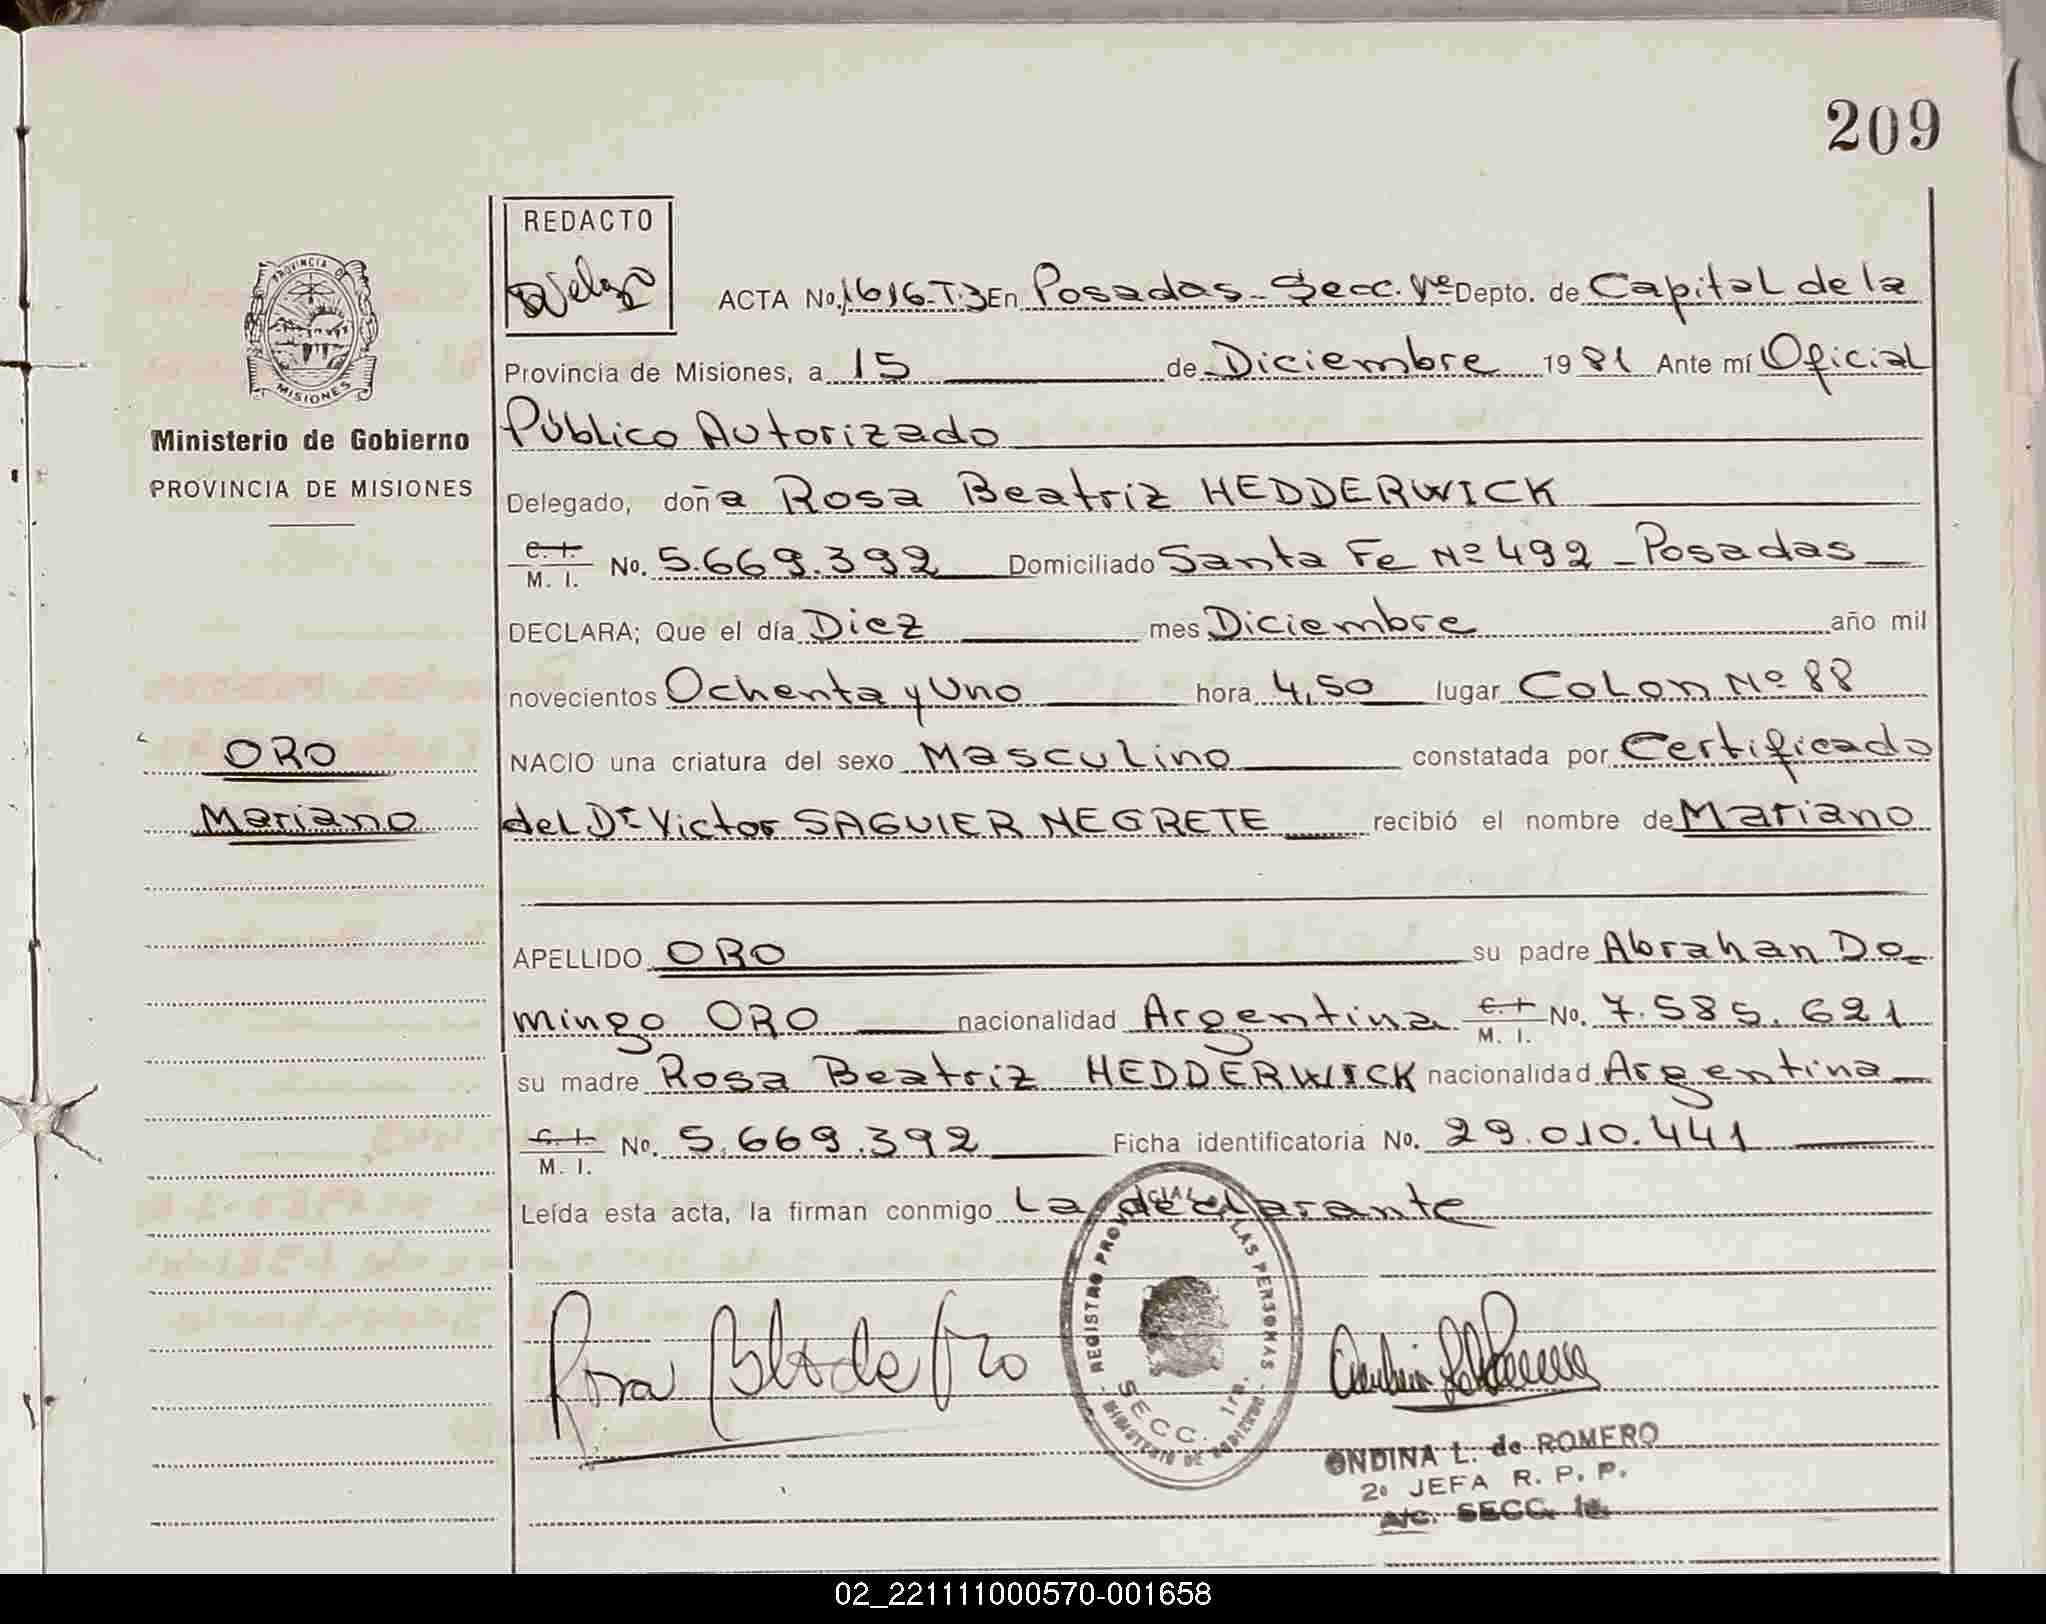 209
REDACTO
PROVINCIA DE
MISIONES
Ministerio de Gobierno
PROVINCIA DE MISIONES
ACTA No. 1616-T.3 En Posadas - Secc. 1ra Depto. de Capital de la
Provincia de Misiones, a 15 de Diciembre 1981 Ante mí Oficial
Público Autorizado
Delegado, doña Rosa Beatriz HEDDERWICK
C. I. M. I. No. 5.669.392 Domiciliado Santa Fe Nº 492 - Posadas
DECLARA; Que el día Diez mes Diciembre año mil
novecientos Ochenta y Uno hora 4,50 lugar Colon Nº 88
ORO
NACIO una criatura del sexo Masculino constatada por Certificado
Mariano
del Dr Victor SAGUIER NEGRETE recibió el nombre de Mariano
APELLIDO ORO su padre Abrahan Do-
mingo ORO nacionalidad Argentina C. I. M. I. No. 7.585.621
su madre Rosa Beatriz HEDDERWICK nacionalidad Argentina
C. I. M. I. No. 5.669.392 Ficha identificatoria No. 29.010.441
Leída esta acta, la firman conmigo La declarante
REGISTRO PROVINCIAL DE LAS PERSONAS
SECC. 1ra.
MINISTERIO DE GOBIERNO
Rosa de Oro
ONDINA L. de ROMERO
2º JEFA R. P. P.
A/C. SECC. 1a.
02_221111000570-001658